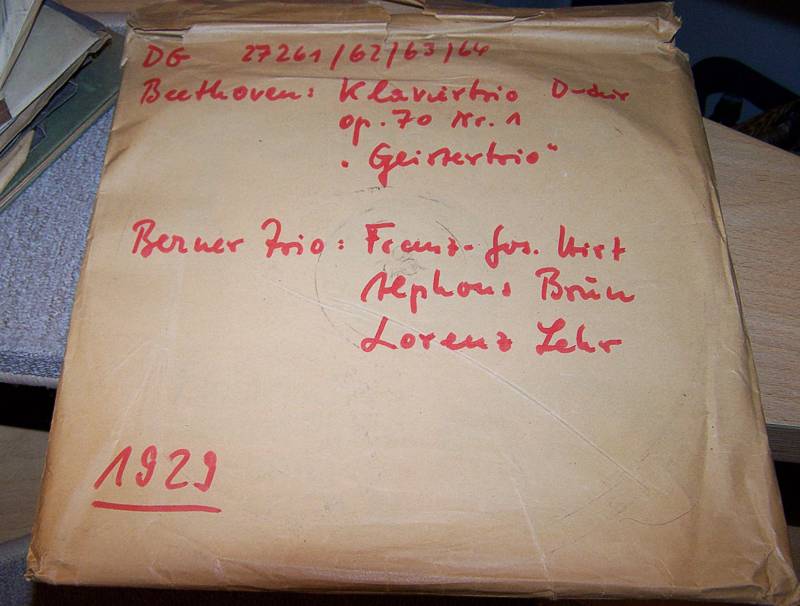 DG 27261/62/63/64
Beethoven: Klaviertrio D-dur
op. 70 Nr. 1
„Geistertrio“
Berner Trio: Franz-Jos. Hirt
Alphons Brun
Lorenz Lehr
1929